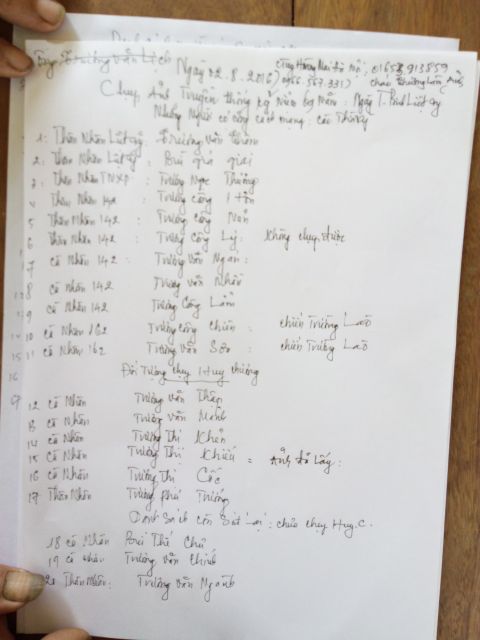 Ông: Trương Văn Lịch
Ngày 02.8.2016
01658 913859
0966.567.331)
Cháu Trương Lâm Anh
Chụp Ảnh Truyền thống kỷ niệm
Những Người có công cách mạng:
1: Thân Nhân Liệt sỹ: Trương Văn
2: Thân Nhân Liệt sỹ: Bùi
3: Thân Nhân TNXP: Trương Ngọc
4 Thân Nhân 142: Trương Công
5 Thân Nhân 142: Trương Công
6 Thân Nhân 142: Trương Công Lý: Không chụp được
7 Cá Nhân 142: Trương Văn Ngan:
8 Cá Nhân 142 Trương Văn Nhân
9 Cá Nhân 142 Trương Công Lâm
10 Cá Nhân 162 Trương Công Chiến: chiến Trường Lào
11 Cá Nhân 162 Trương Văn Sơn: chiến Trường Lào
Đối Tượng chụp Huy chương
12 Cá Nhân Trương Văn Thập
13 Cá Nhân Trương Văn Mạnh
14 Cá Nhân Trương Thị Khẻn
15 Cá Nhân Trương Thị Khiếu = Ảnh đã lấy:
16 Cá Nhân Trương Thị Cốc
17 Thân Nhân Trương Phú Trương
Danh Sách còn Sót lại: chưa chụp Huy.C.
18 Cá Nhân Bùi Thế Chử
19 Cá Nhân Trương Văn Chinh
20 Thân Nhân: Trương Văn Ngành